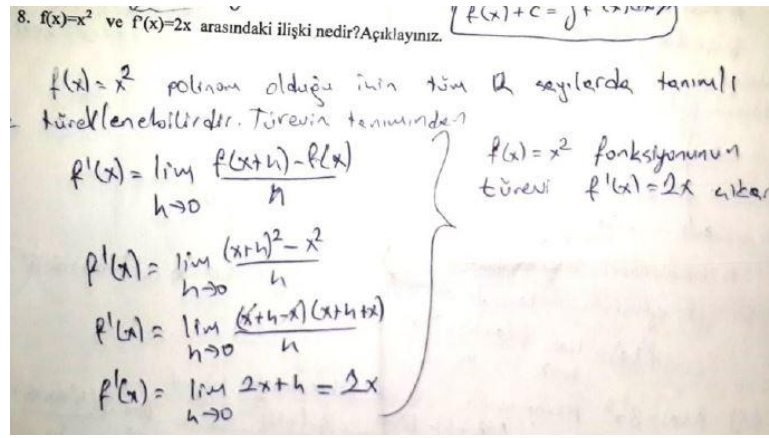 8. f(x)=x² ve f'(x)=2x arasındaki ilişki nedir?Açıklayınız.
f(x)+c = ∫
f(x) = x² polinom olduğu için tüm R sayılarda tanımlı
türevlenebilirdir. Türevin tanımından
f'(x) = lim h→0 f(x+h)-f(x) / h
f'(x) = lim h→0 (x+h)² - x² / h
f'(x) = lim h→0 (x+h-x)(x+h+x) / h
f'(x) = lim h→0 2x+h = 2x
f(x) = x² fonksiyonunun
türevi f'(x) = 2x çıkar